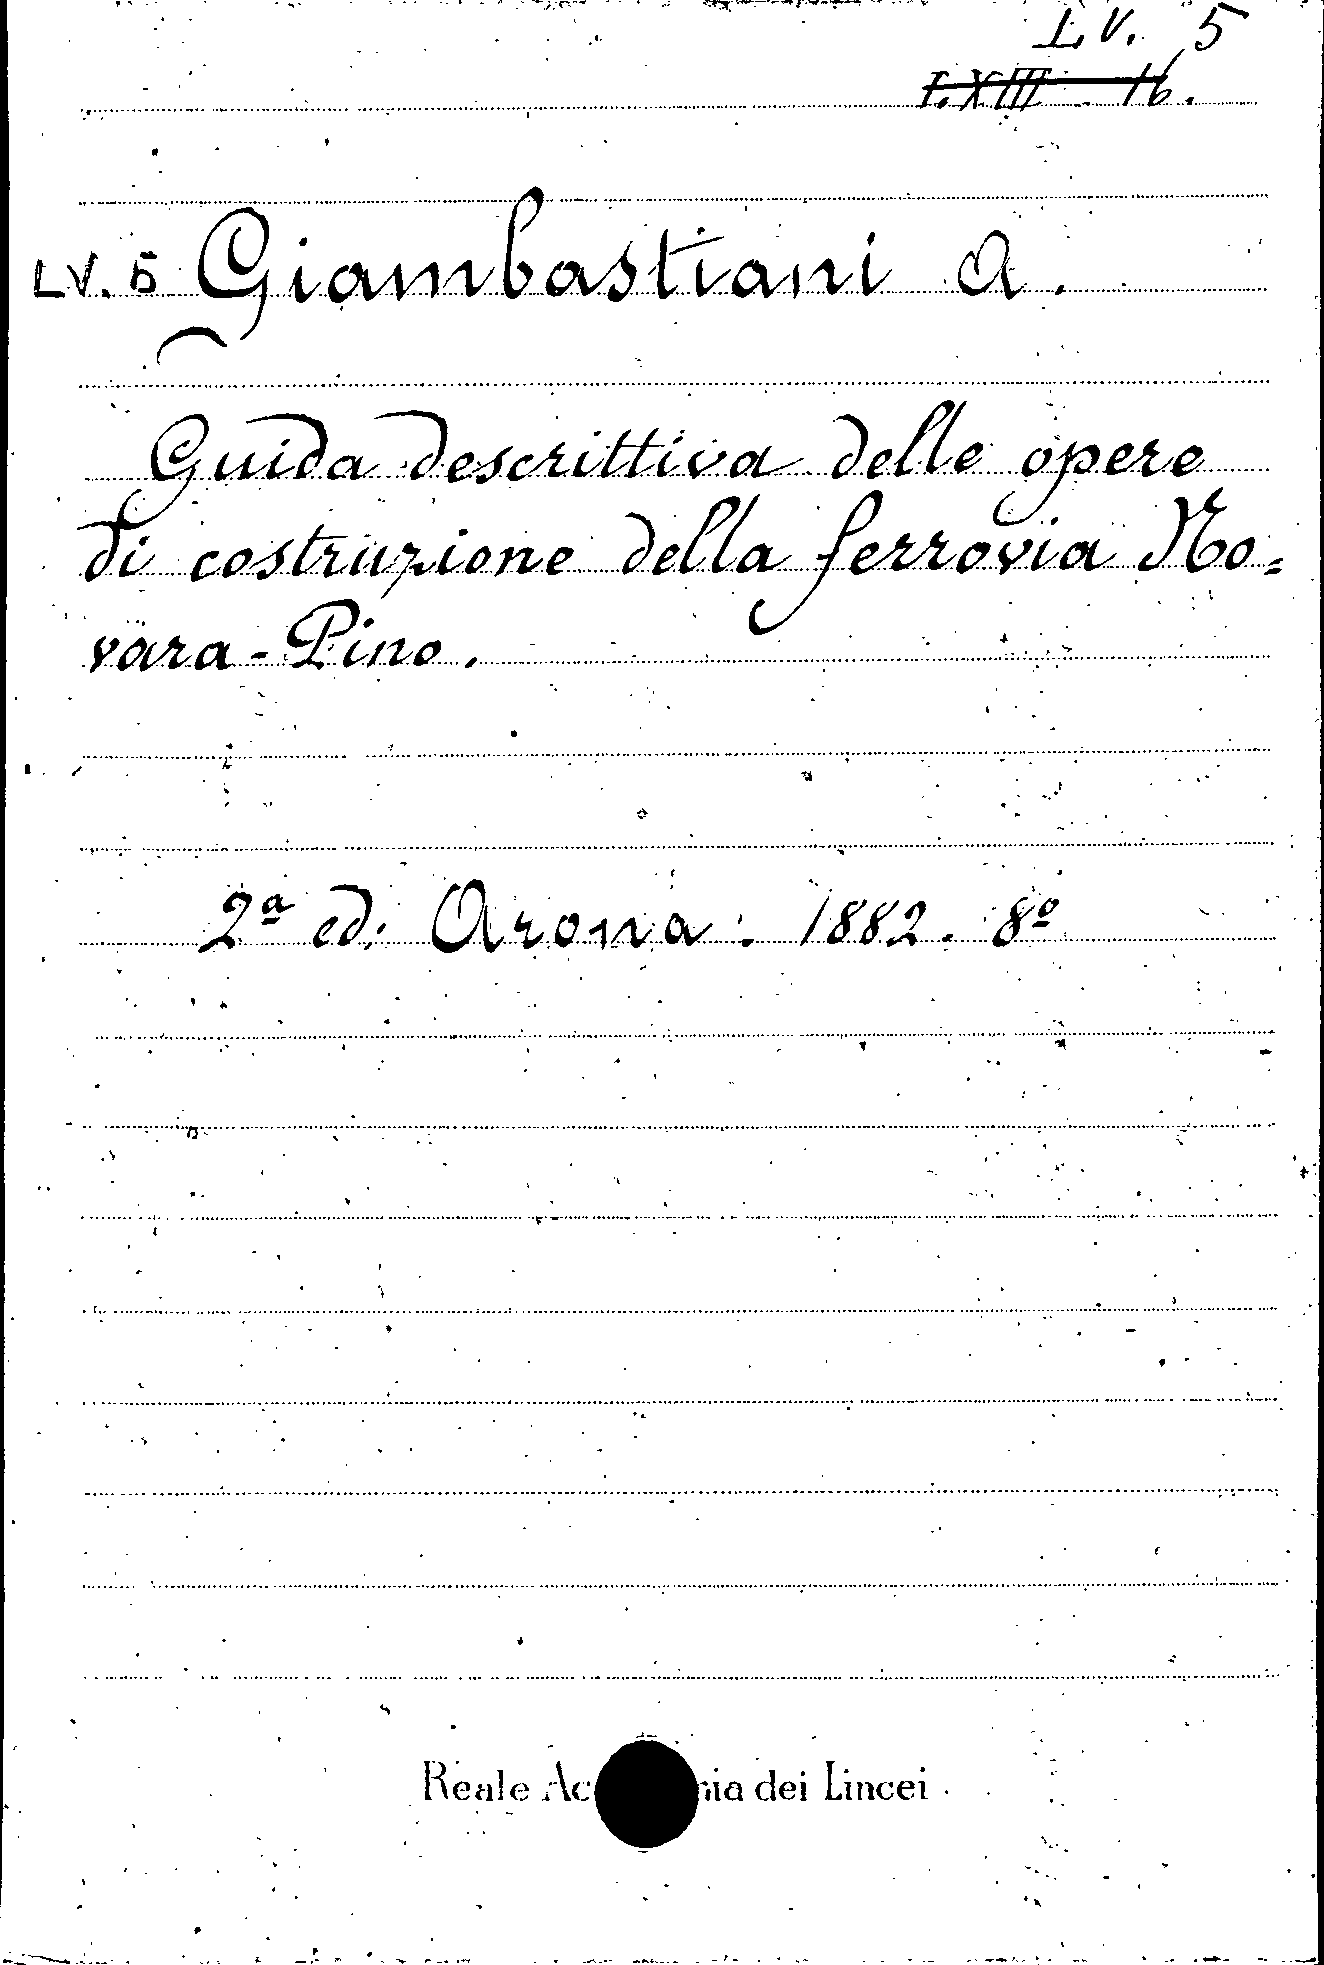 LV. 5
I. XIII 16.
LV. 5 Giambastiani A.
Guida descrittiva delle opere
di costruzione della ferrovia No=
vara-Pino.
2ª ed: Arona: 1882. 8º
Reale Ac mia dei Lincei